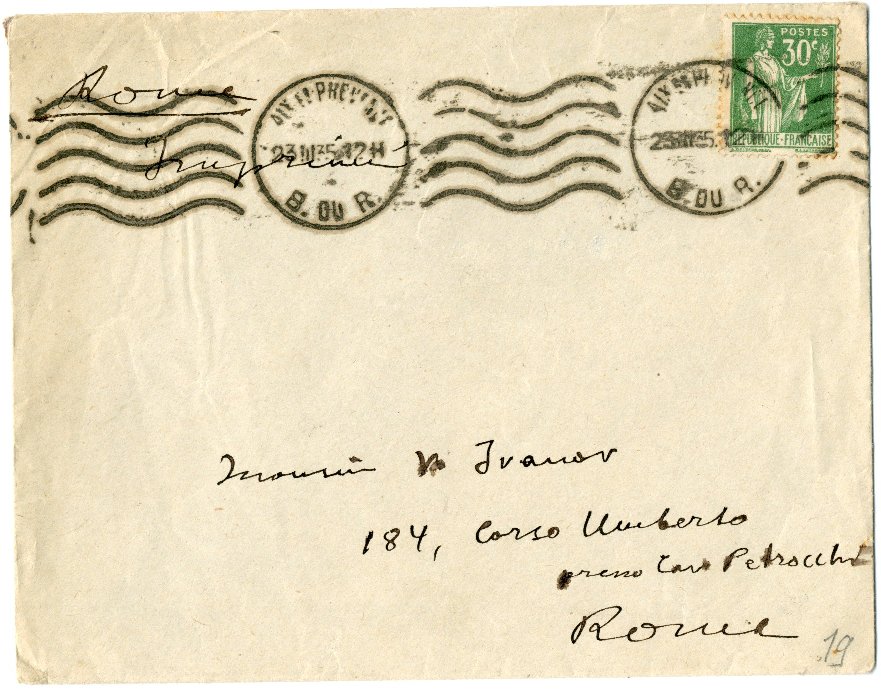 Rome
Imprimé
AIX EN PROVENCE
23 III 35. 12 H
B. DU R.
AIX EN PROVENCE
23 III 35. 12
B. DU R.
POSTES
30c
REPUBLIQUE-FRANCAISE
Monsieur V. Ivanov
184, Corso Umberto
presso Cav Petrocchi
Rome
19